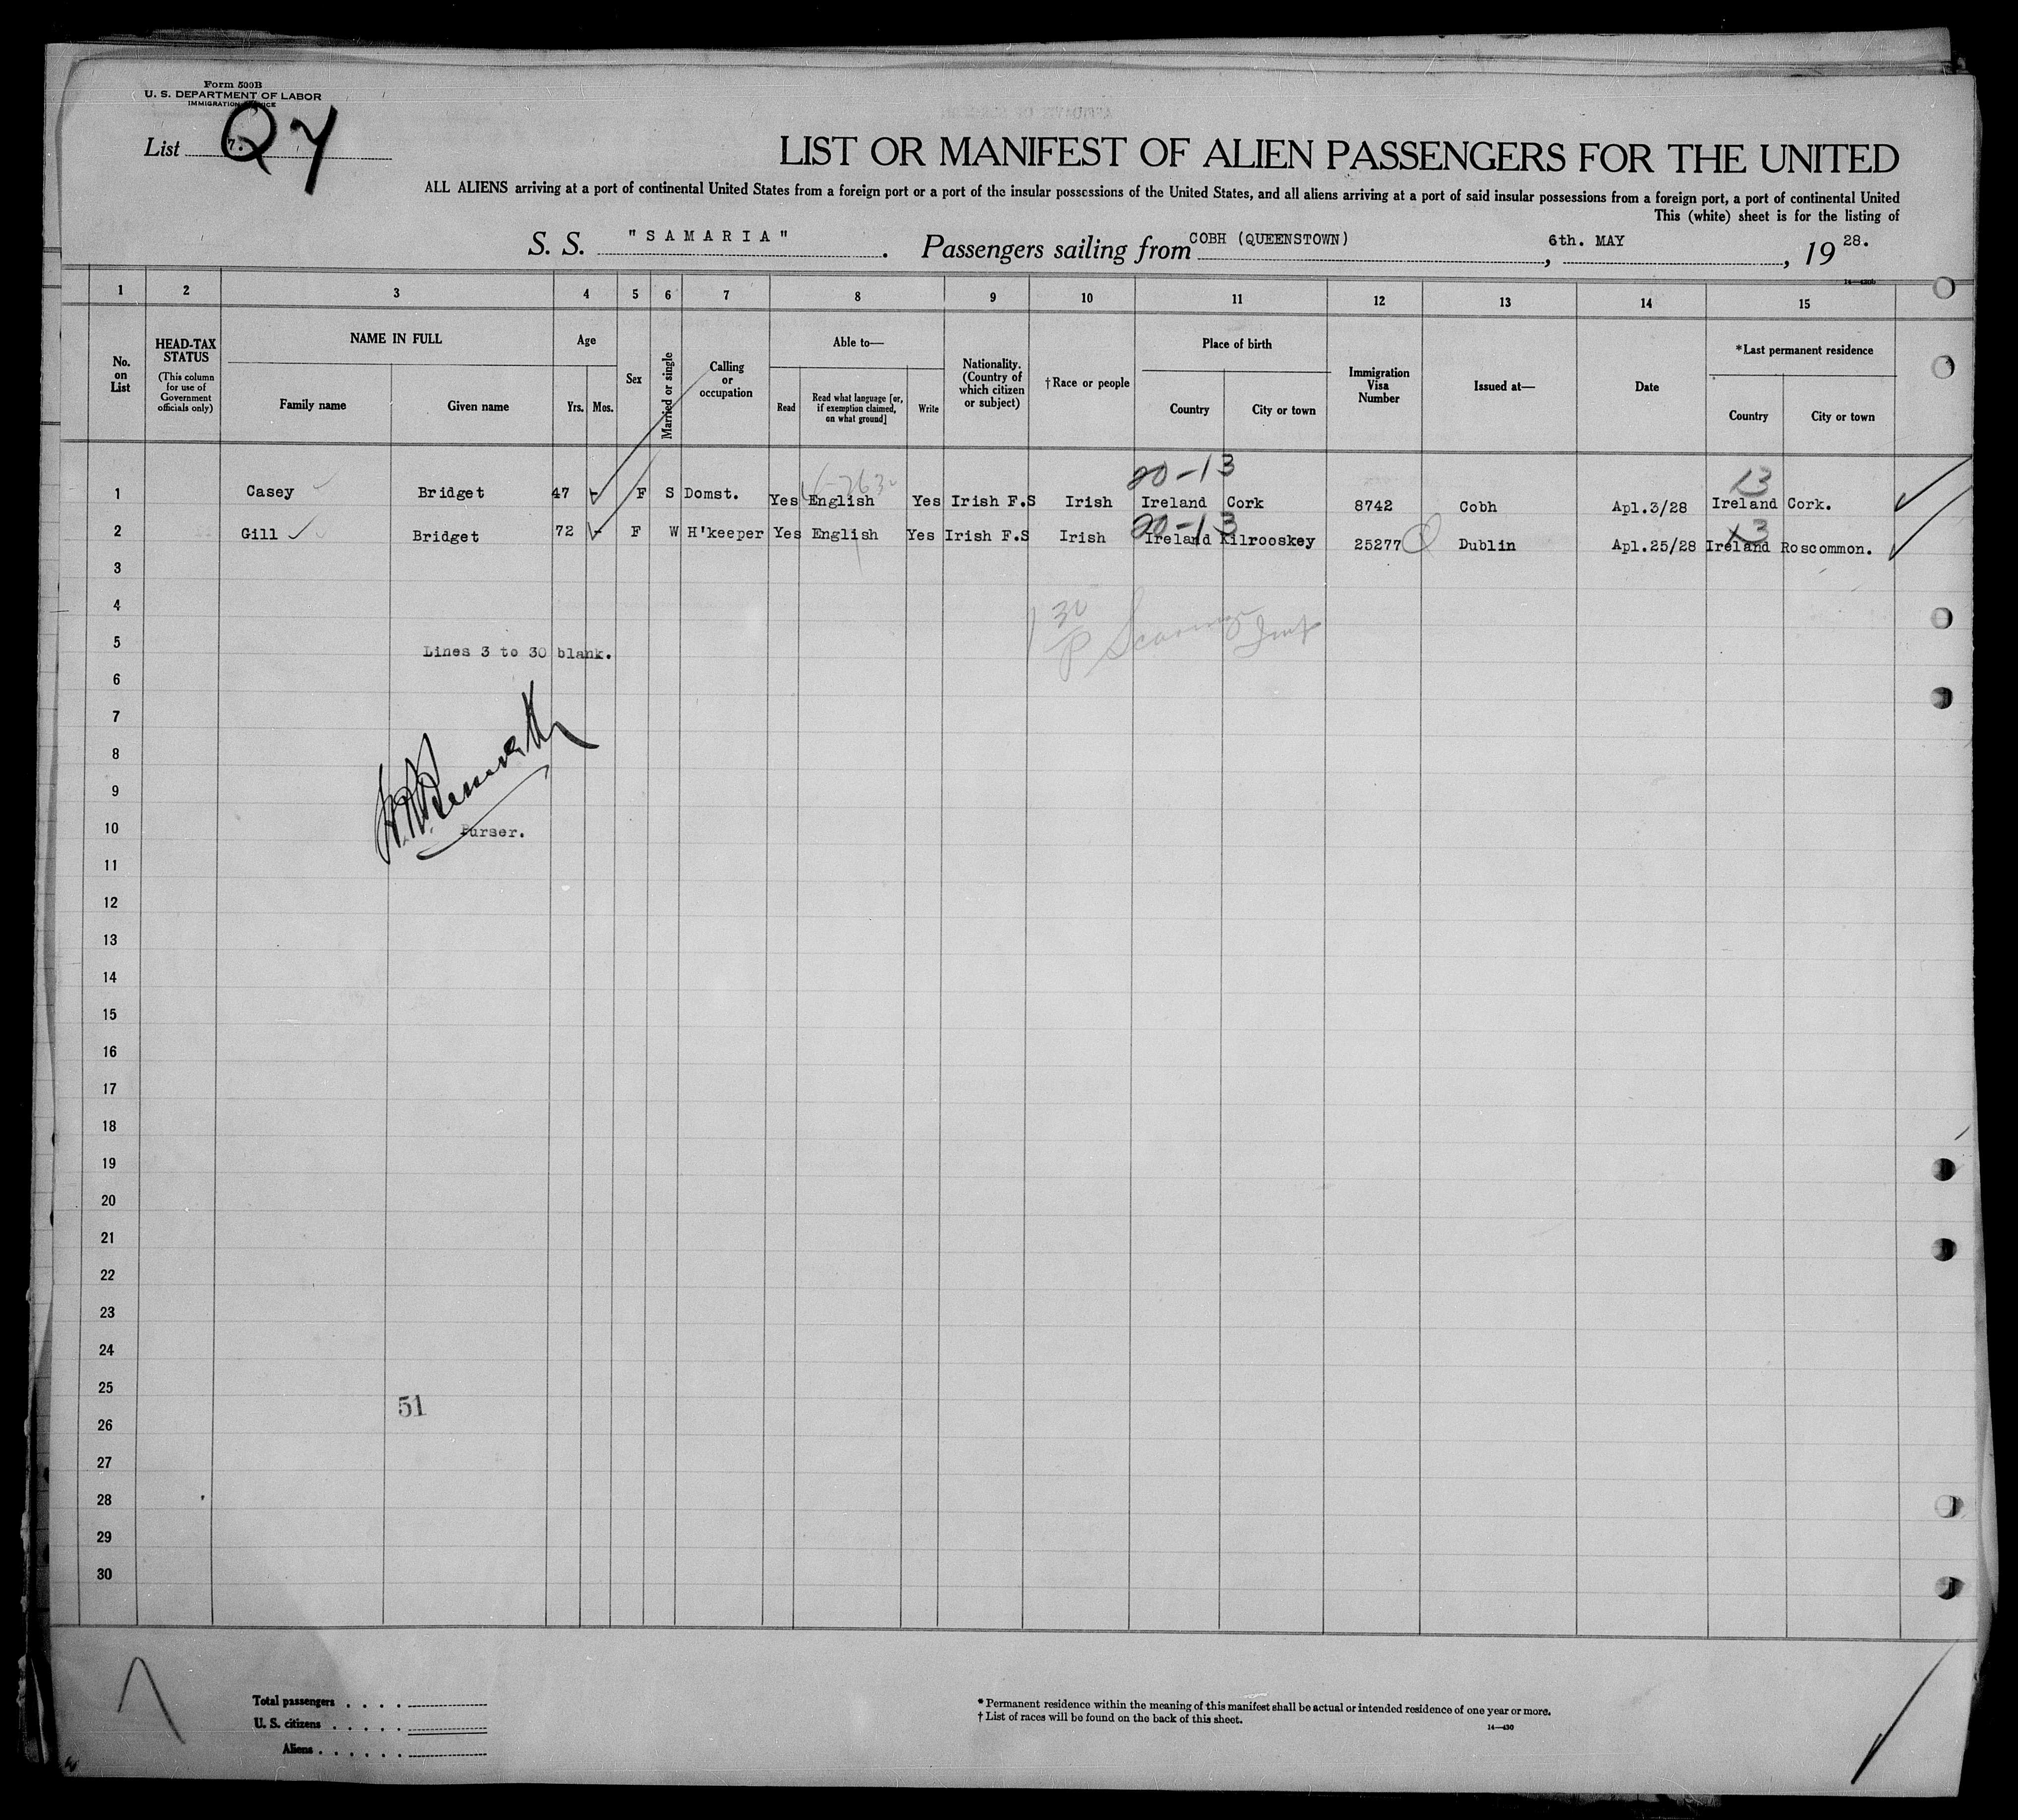 Form 500B
U. S. DEPARTMENT OF LABOR
IMMIGRATION SERVICE
List 7. Q7
LIST OR MANIFEST OF ALIEN PASSENGERS FOR THE UNITED
ALL ALIENS arriving at a port of continental United States from a foreign port or a port of the insular possessions of the United States, and all aliens arriving at a port of said insular possessions from a foreign port, a port of continental United
This (white) sheet is for the listing of
S. S. "SAMARIA" . Passengers sailing from COBH (QUEENSTOWN) , 6th. MAY , 19 28.
14—430b
1 2 3 4 5 6 7 8 9 10 11 12 13 14 15
No. on List
HEAD-TAX STATUS
(This column for use of Government officials only)
NAME IN FULL
Family name Given name
Age
Yrs. Mos.
Sex
Married or single
Calling or occupation
Able to—
Read
Read what language [or, if exemption claimed, on what ground]
Write
Nationality. (Country of which citizen or subject)
†Race or people
Place of birth
Country City or town
Immigration Visa Number
Issued at—
Date
*Last permanent residence
Country City or town
20-13 13
1 Casey Bridget 47 - F S Domst. Yes English Yes Irish F.S Irish Ireland Cork 8742 Cobh Apl.3/28 Ireland Cork.
20-13 x3
2 Gill Bridget 72 - F W H'keeper Yes English Yes Irish F.S Irish Ireland Kilrooskey 25277 Dublin Apl.25/28 Ireland Roscommon.
3
4
5
Lines 3 to 30 blank.
6
7
8
9
10
Purser.
11
12
13
14
15
16
17
18
19
20
21
22
23
24
25
51
26
27
28
29
30
Total passengers
U. S. citizens
Aliens
* Permanent residence within the meaning of this manifest shall be actual or intended residence of one year or more.
† List of races will be found on the back of this sheet.
14—430